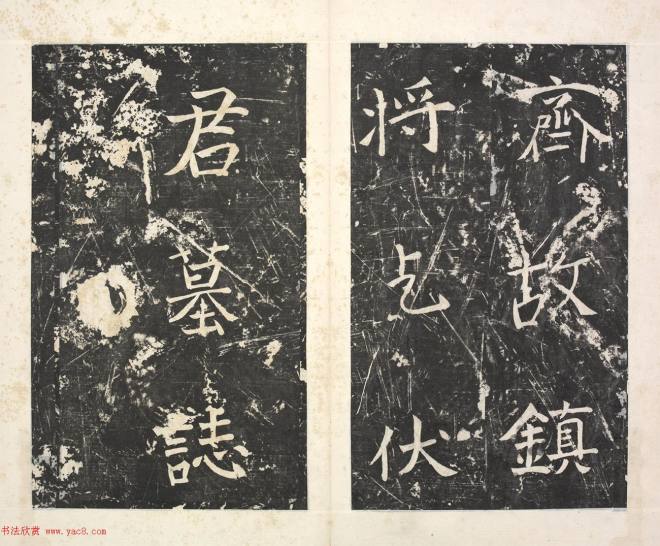 齊故鎮
将乞伏
君墓誌
书法欣赏 www.yac8.com